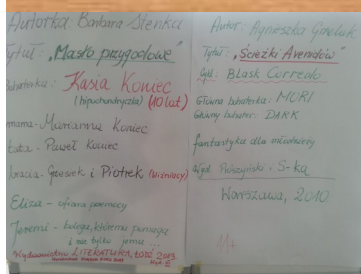 Autorka: Barbara Stenka
Tytuł: "Masło przygodowe"
Bohaterka: Kasia Koniec
(hipochondryczka) (10 lat)
mama - Marianna Koniec
tata - Paweł Koniec
bracia - Grzesiek i Piotrek (bliźniacy)
Eliza - ofiara przemocy
Jeremi - kolega, któremu pomaga
i nie tylko jemu ...
Wydawnictwo LITERATURA, Łódź 2013
Autor: Agnieszka Grzelak
Tytuł: "Ścieżki Avenidów"
Cykl: Blask Corredo
Główna bohaterka: MURI
Główny bohater: DARK
fantastyka dla młodzieży
Wyd. Prószyński i S-ka
Warszawa, 2010
11+